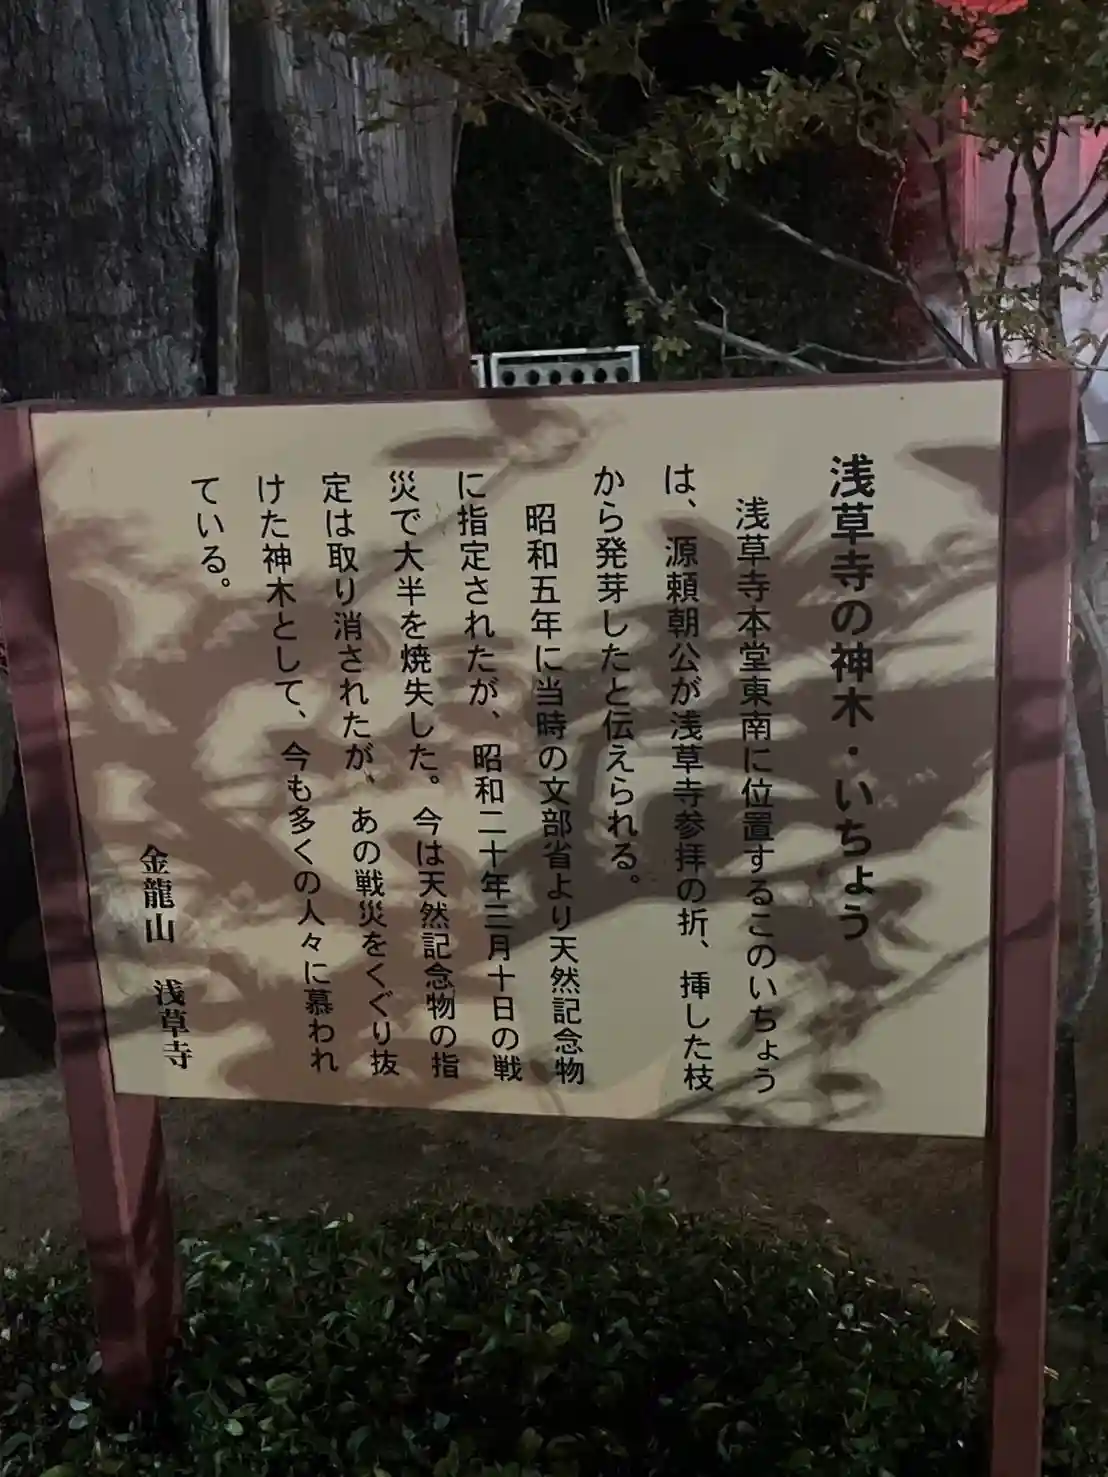 浅草寺の神木・いちょう
浅草寺本堂東南に位置するこのいちょう
は、源頼朝公が浅草寺参拝の折、挿した枝
から発芽したと伝えられる。
昭和五年に当時の文部省より天然記念物
に指定されたが、昭和二十年三月十日の戦
災で大半を焼失した。今は天然記念物の指
定は取り消されたが、あの戦災をくぐり抜
けた神木として、今も多くの人々に慕われ
ている。
金龍山　浅草寺